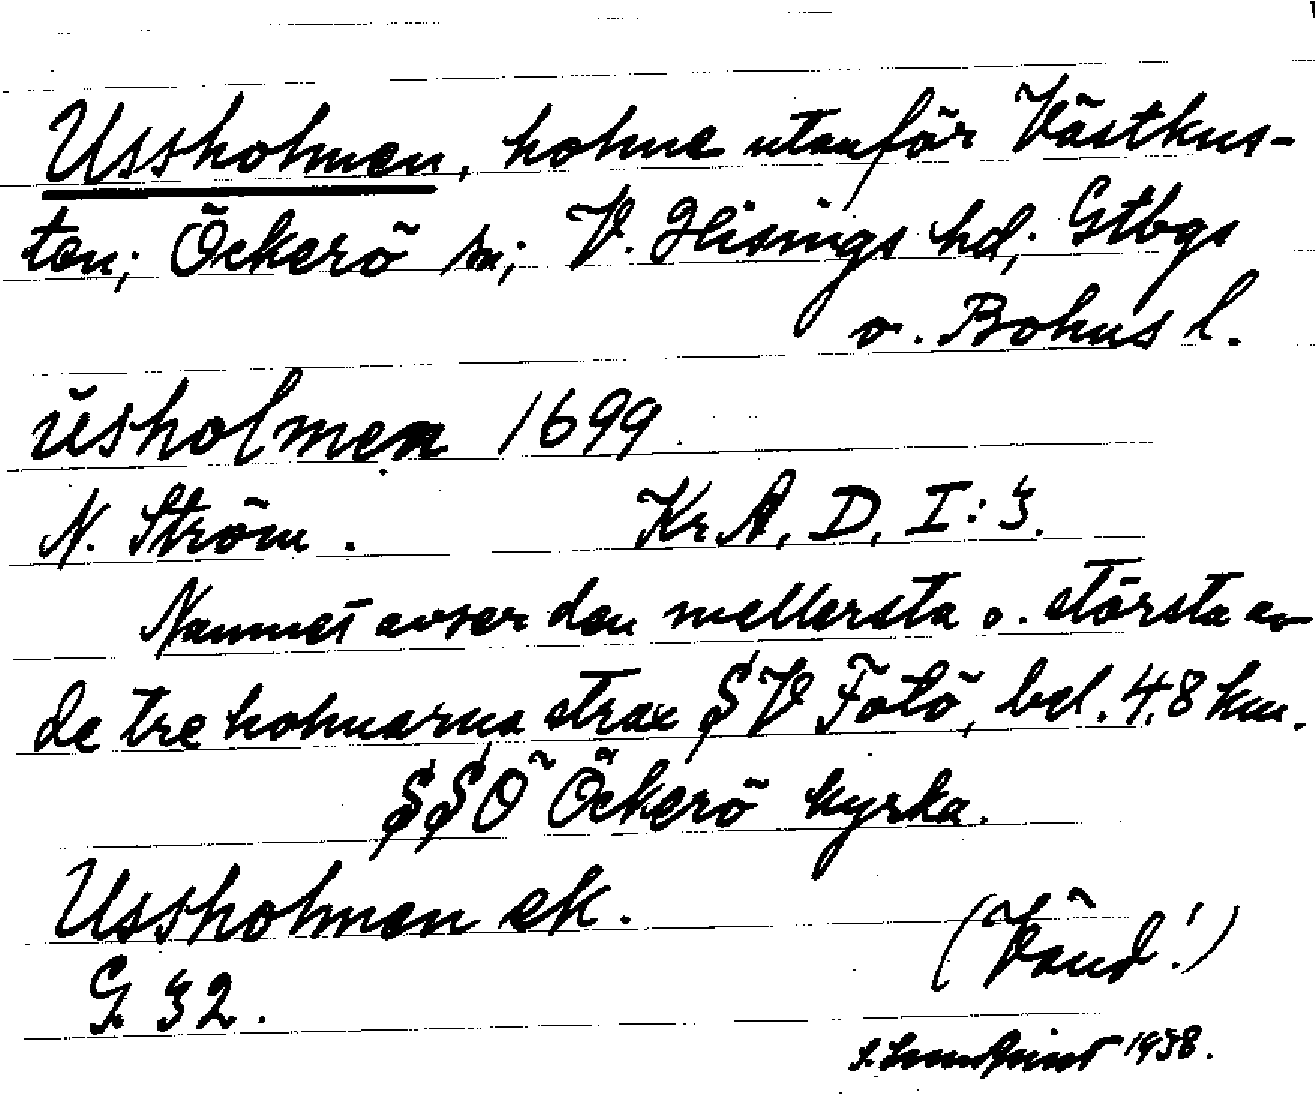 Ussholmen, holme utanför Västkus-
ten; Öckerö sn; V. Hisings hd; Gtbgs
o. Bohus l.
ŭsholmen 1699.
N. Ström. Kr.A, D, I:3.
Namnet avser den mellersta o. största av
de tre holmarna strax SV Fotö, bel. 4,8 km.
SSÖ Öckerö kyrka.
Ussholmen ek.
G. 32. (Vänd!)
S. Lundquist 1938.